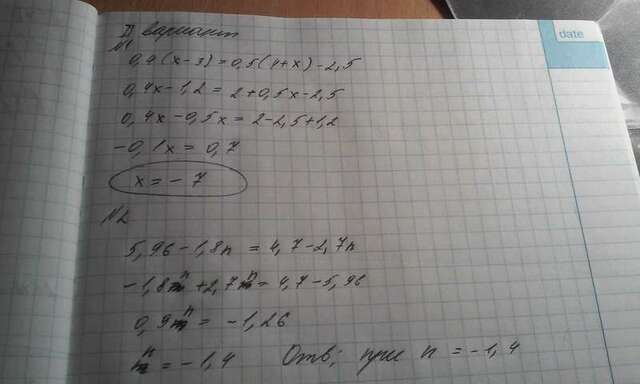 II вариант
date
№1
0,4(x-3)=0,5(4+x)-2,5
0,4x-1,2=2+0,5x-2,5
0,4x-0,5x=2-2,5+1,2
-0,1x=0,7
x=-7
№2
5,96-1,8n=4,7-2,7n
-1,8n+2,7n=4,7-5,96
0,9n=-1,26
n=-1,4 Отв; при n=-1,4